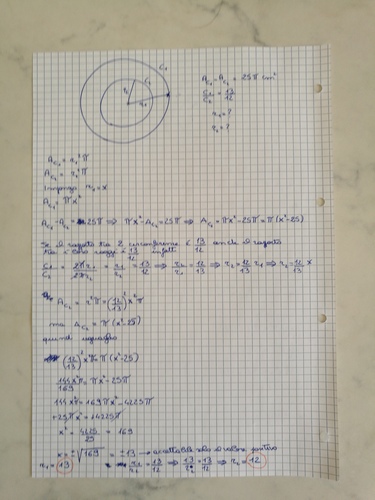 C₁
C₂
r₂
r₁
A_C₁ - A_C₂ = 25π cm²
C₁/C₂ = 13/12
r₁ = ?
r₂ = ?
A_C₁ = r₁² π
A_C₂ = r₂² π
Impongo r₁ = x
A_C₁ = πx²
A_C₁ - A_C₂ = 25π ⇒ πx² - A_C₂ = 25π ⇒ A_C₂ = πx² - 25π = π(x² - 25)
Se il rapporto tra 2 circonferenze è 13/12 anche il rapporto
tra i loro raggi è 13/12 infatti
C₁/C₂ = 2πr₁/2πr₂ = r₁/r₂ = 13/12 ⇒ r₂/r₁ = 12/13 ⇒ r₂ = 12/13 r₁ ⇒ r₂ = 12/13 x
A_C₂ = r₂² π = (12/13)² x² π
ma A_C₂ = π(x² - 25)
quindi
(12/13)² x² π = π(x² - 25)
144x²π/169 = πx² - 25π
144x²π = 169πx² - 4225π
+25πx² = +4225π
x² = 4225/25 = 169
x = ±√169 = ±13 → accettabile solo il valore positivo
r₁ = 13
r₁/r₂ = 13/12 ⇒ 13/r₂ = 13/12 ⇒ r₂ = 12